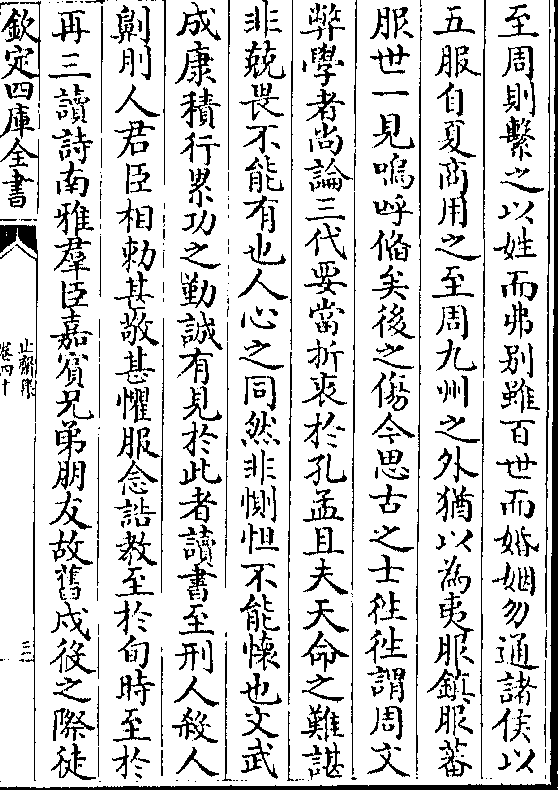 至周則繫之以姓而弗别雖百世而婚姻勿通諸侯以
五服自夏商用之至周九州之外猶以為夷服鎮服蕃
服世一見嗚呼偹矣後之傷今思古之士徃徃謂周文
弊學者尚論三代要當折衷於孔孟且夫天命之難諶
非兢畏不能有也人心之同然非惻怛不能懐也文武
成康積行累功之勤誠有見於此者讀書至刑人殺人
劓刖人君臣相勅甚敬甚懼服念誥教至於旬時至於
再三讀詩南雅羣臣嘉賔兄弟朋友故舊戍役之際徒
欽定四庫全書
止齋集
卷四十
三